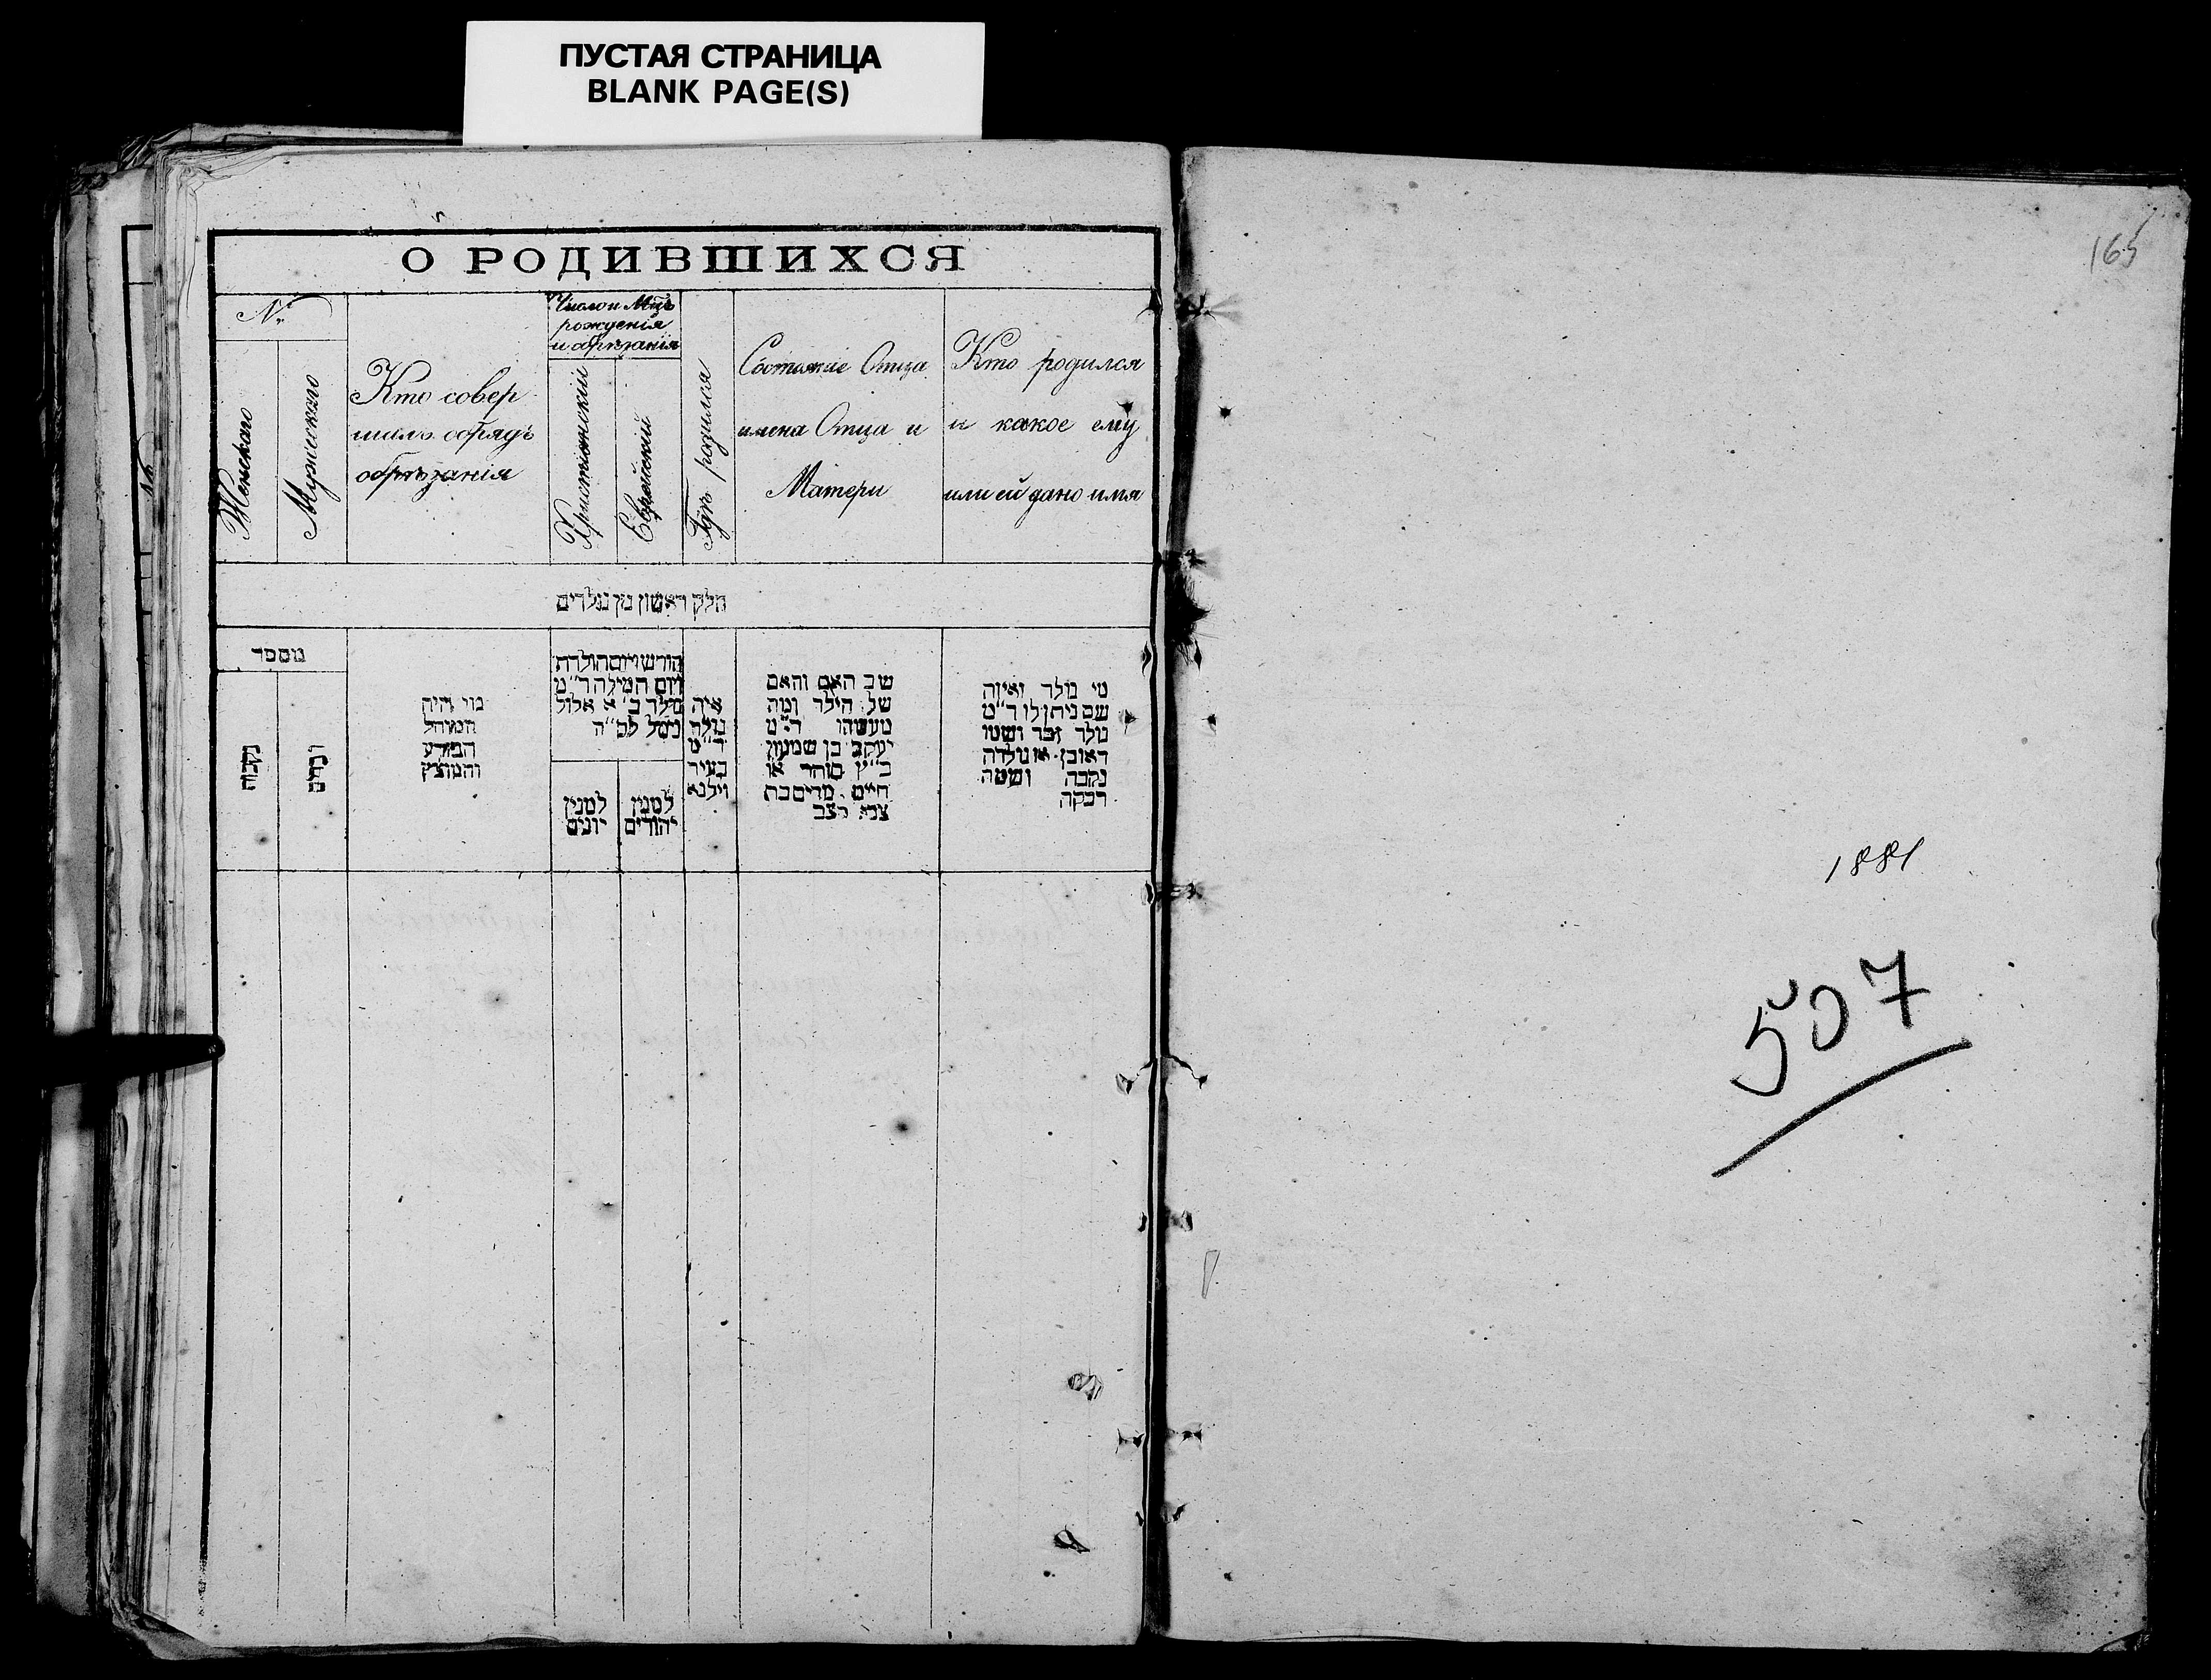 ПУСТАЯ СТРАНИЦА
BLANK PAGE(S)
О РОДИВШИХСЯ
№
Женскаго
Мужескаго
Кто совер
шилъ обрядъ
обрѣзанія
Число и Мцъ
рожденія
и обрѣзанія
Христіянскій
Еврейскій
Гдѣ родился
Состояніе Отца
имена Отца и
Матери
Кто родился
и какое ему
или ей дано имя
חלק ראשון מן נולדים
מספר
נקבה
זכרים
מי היה
המוהל
הפורע
והמוצץ
חודש ויום הולדת
ויום המילה ד״מ
נולד ב׳ א אלול
נימל
למנין
יונים
למנין
יהודים
איה
נולד
ד״מ
בעיר
וילנא
שב האם והאם
של הילד ומה
מעשהו ד״מ
יעקב בן שמעון
כ״ץ סוחר או
חייט מרים בת
צבי
מי נולד ואיזה
שם ניתן לו ד״מ
נולד זכר ושמו
ראובן או נולדה
נקבה ושמה
רבקה
165
1881
507